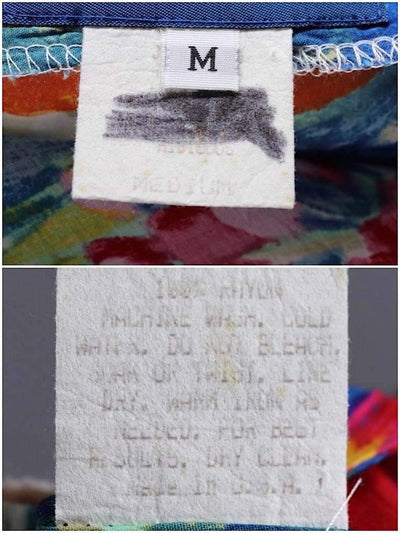 M
MEDIUM
100% RAYON
MACHINE WASH. COLD
WATER. DO NOT BLEACH.
OR TWIST. LINE
DRY. WARM IRON AS
NEEDED. FOR BEST
RESULTS. DRY CLEAN.
MADE IN U.S.A.